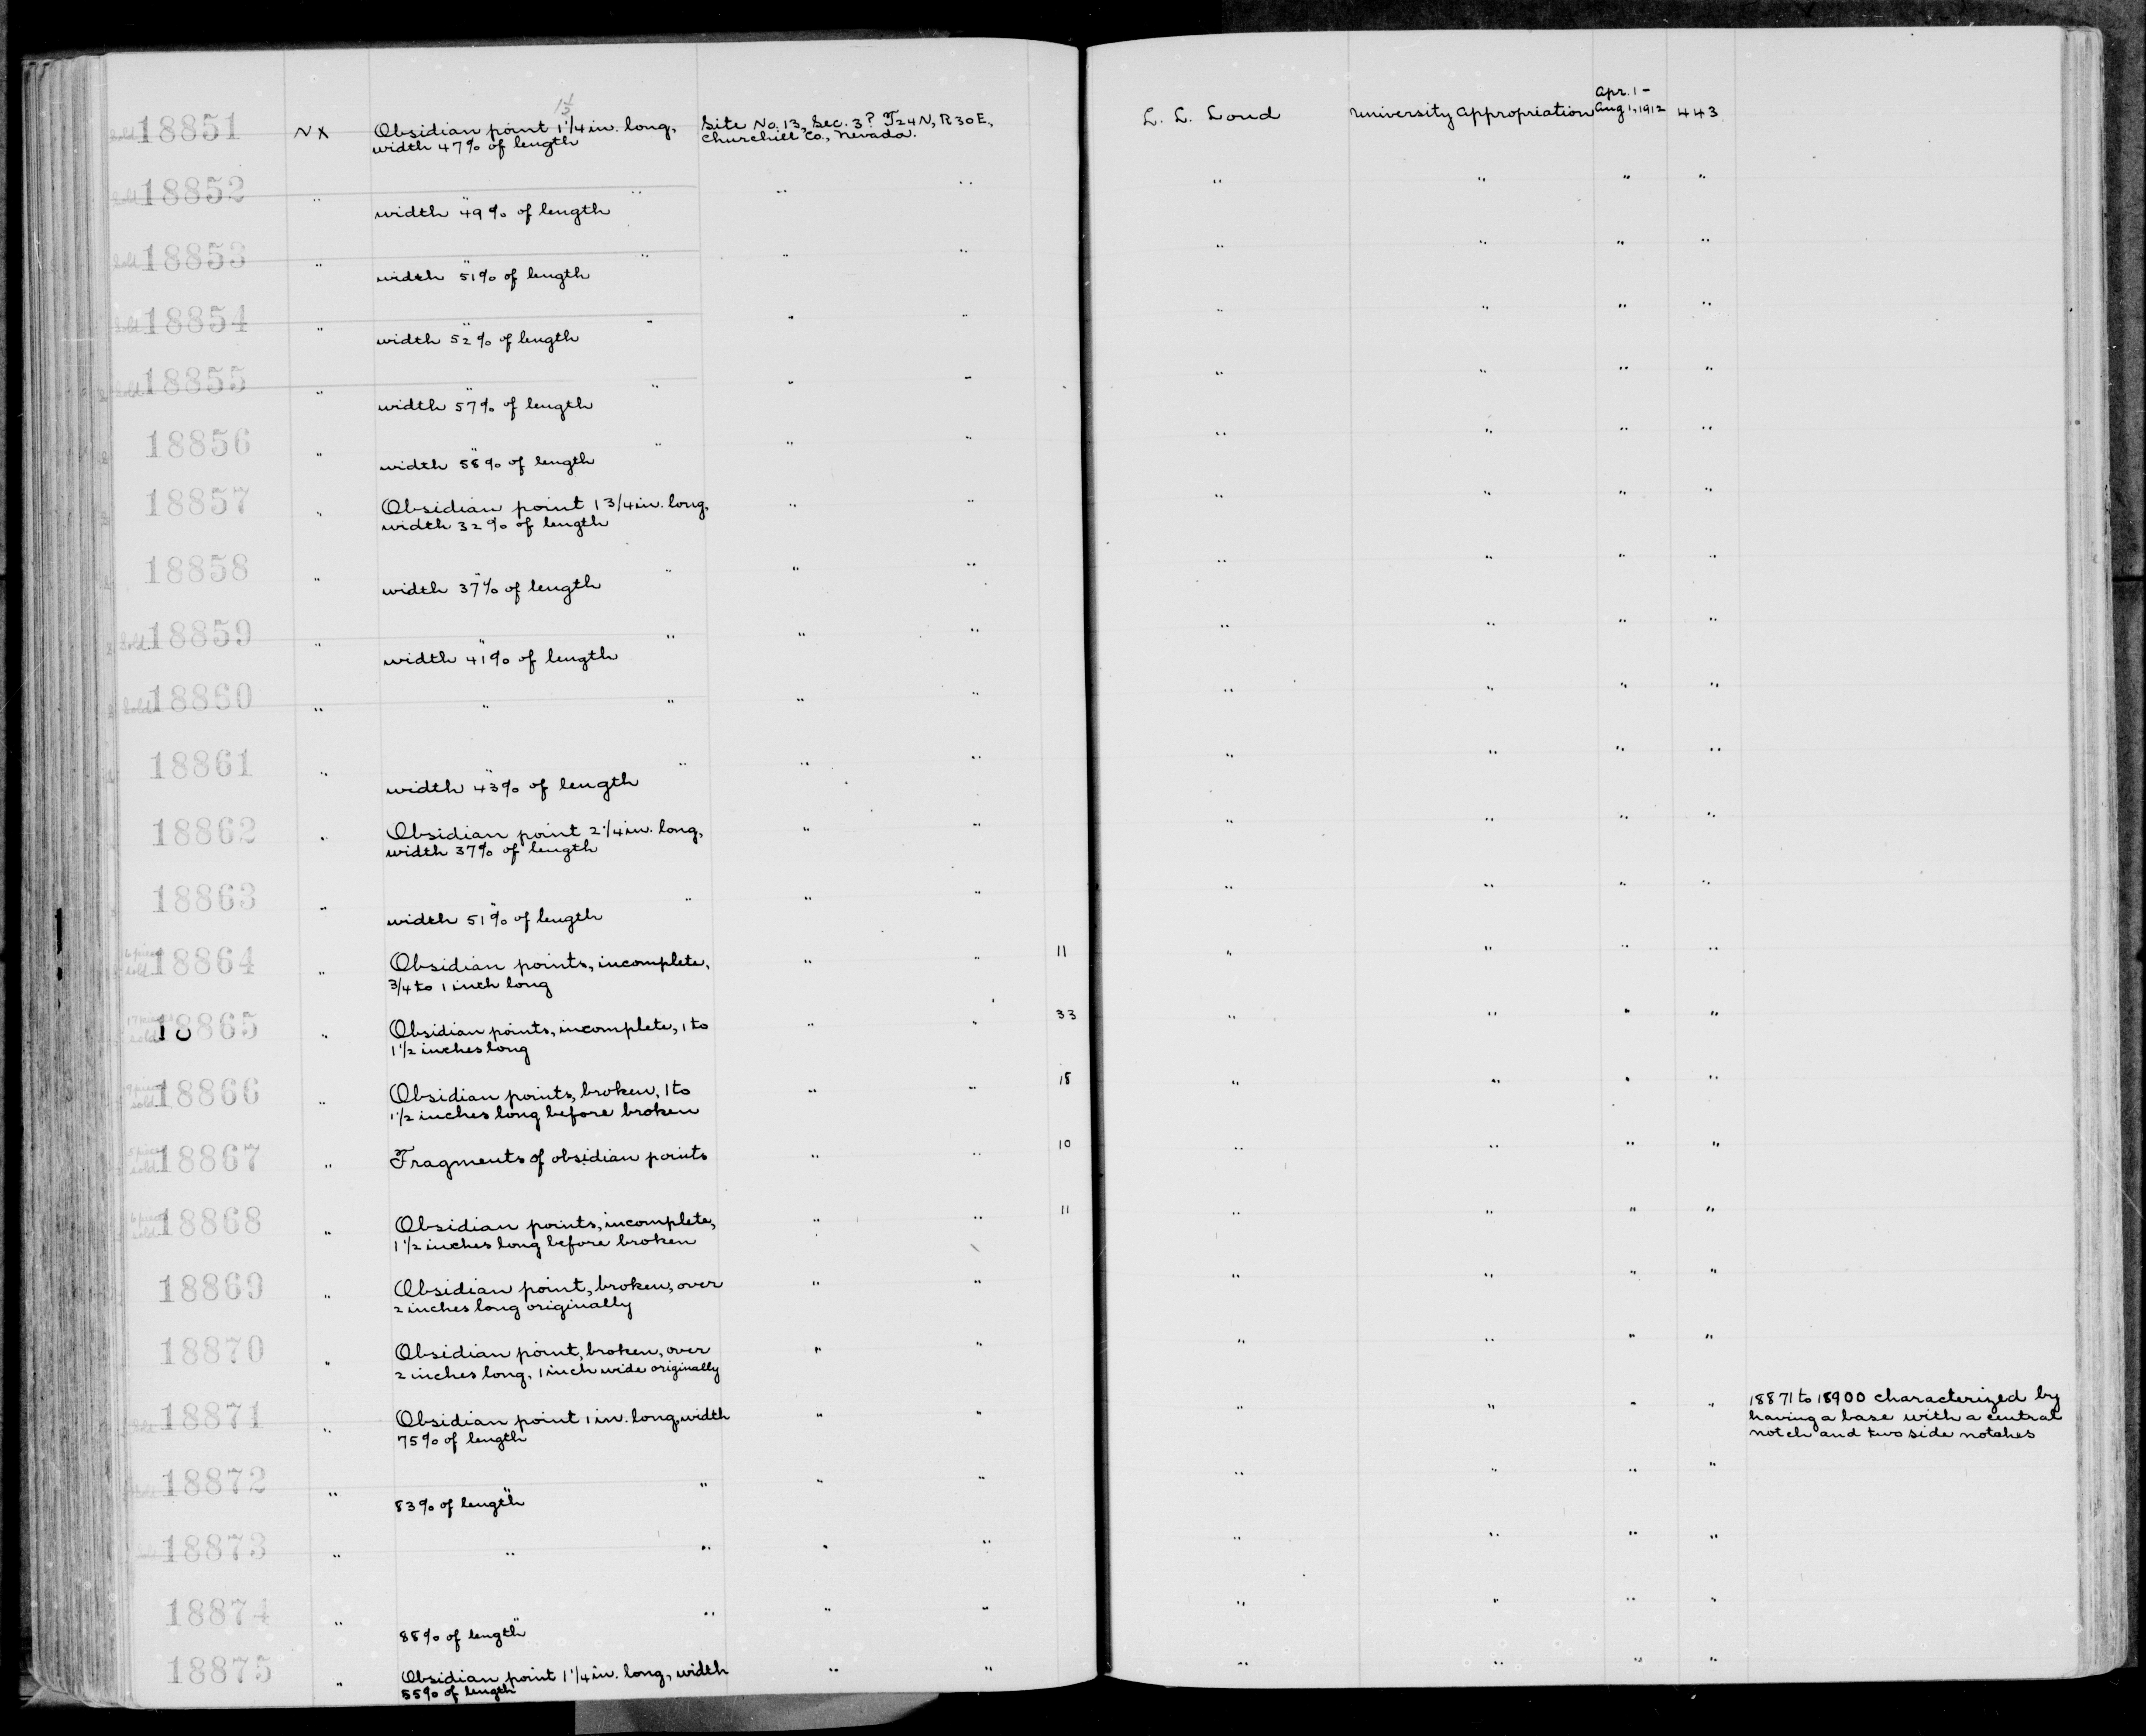 1 1/2
sold 18851 NX Obsidian point 1 1/4 in. long, Site No. 13, Sec. 3? T24N, R30E, L. L. Loud University Appropriation Apr. 1 - Aug 1, 1912 443
width 47% of length Churchill Co., Nevada.
sold 18852 " " " " " " " " "
width 49% of length
sold 18853 " " " " " " " " "
width 51% of length
sold 18854 " " " " " " " " "
width 52% of length
sold 18855 " " " " " " " " "
width 57% of length
18856 " " " " " " " " "
width 58% of length
18857 " Obsidian point 1 3/4 in. long, " " " " " "
width 32% of length
18858 " " " " " " " " "
width 37% of length
sold 18859 " " " " " " " " "
width 41% of length
sold 18860 " " " " " " " " "
18861 " " " " " " " " "
width 43% of length
18862 " Obsidian point 2 1/4 in. long, " " " " " "
width 37% of length
18863 " " " " " " " " "
width 51% of length
sold 18864 " Obsidian points, incomplete, " " 11 " " " "
3/4 to 1 inch long
sold 18865 " Obsidian points, incomplete, 1 to " " 33 " " " "
1 1/2 inches long
sold 18866 " Obsidian points, broken, 1 to " " 18 " " " "
1 1/2 inches long before broken
sold 18867 " Fragments of obsidian points " " 10 " " " "
sold 18868 " Obsidian points, incomplete, " " 11 " " " "
1 1/2 inches long before broken
18869 " Obsidian point, broken, over " " " " " "
2 inches long originally
18870 " Obsidian point, broken, over " " " " " "
2 inches long, 1 inch wide originally
18871 " Obsidian point 1 in. long, width " " " " " " 18871 to 18900 characterized by
75% of length having a base with a central
notch and two side notches
18872 " " " " " " " " "
83% of length
18873 " " " " " " " " "
18874 " " " " " " " " "
88% of length
18875 " Obsidian point 1 1/4 in. long, width " " " " " "
55% of length